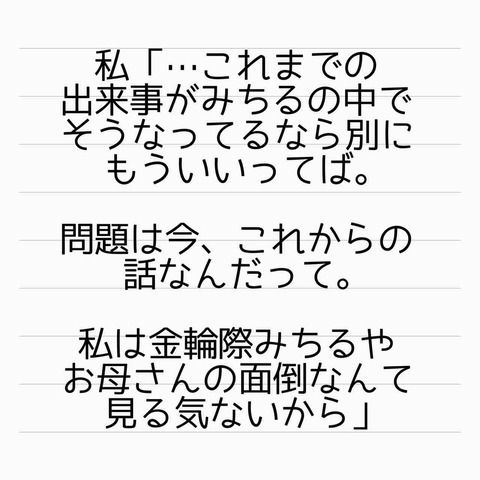 私「…これまでの
出来事がみちるの中で
そうなってるなら別に
もういいってば。
問題は今、これからの
話なんだって。
私は金輪際みちるや
お母さんの面倒なんて
見る気ないから」